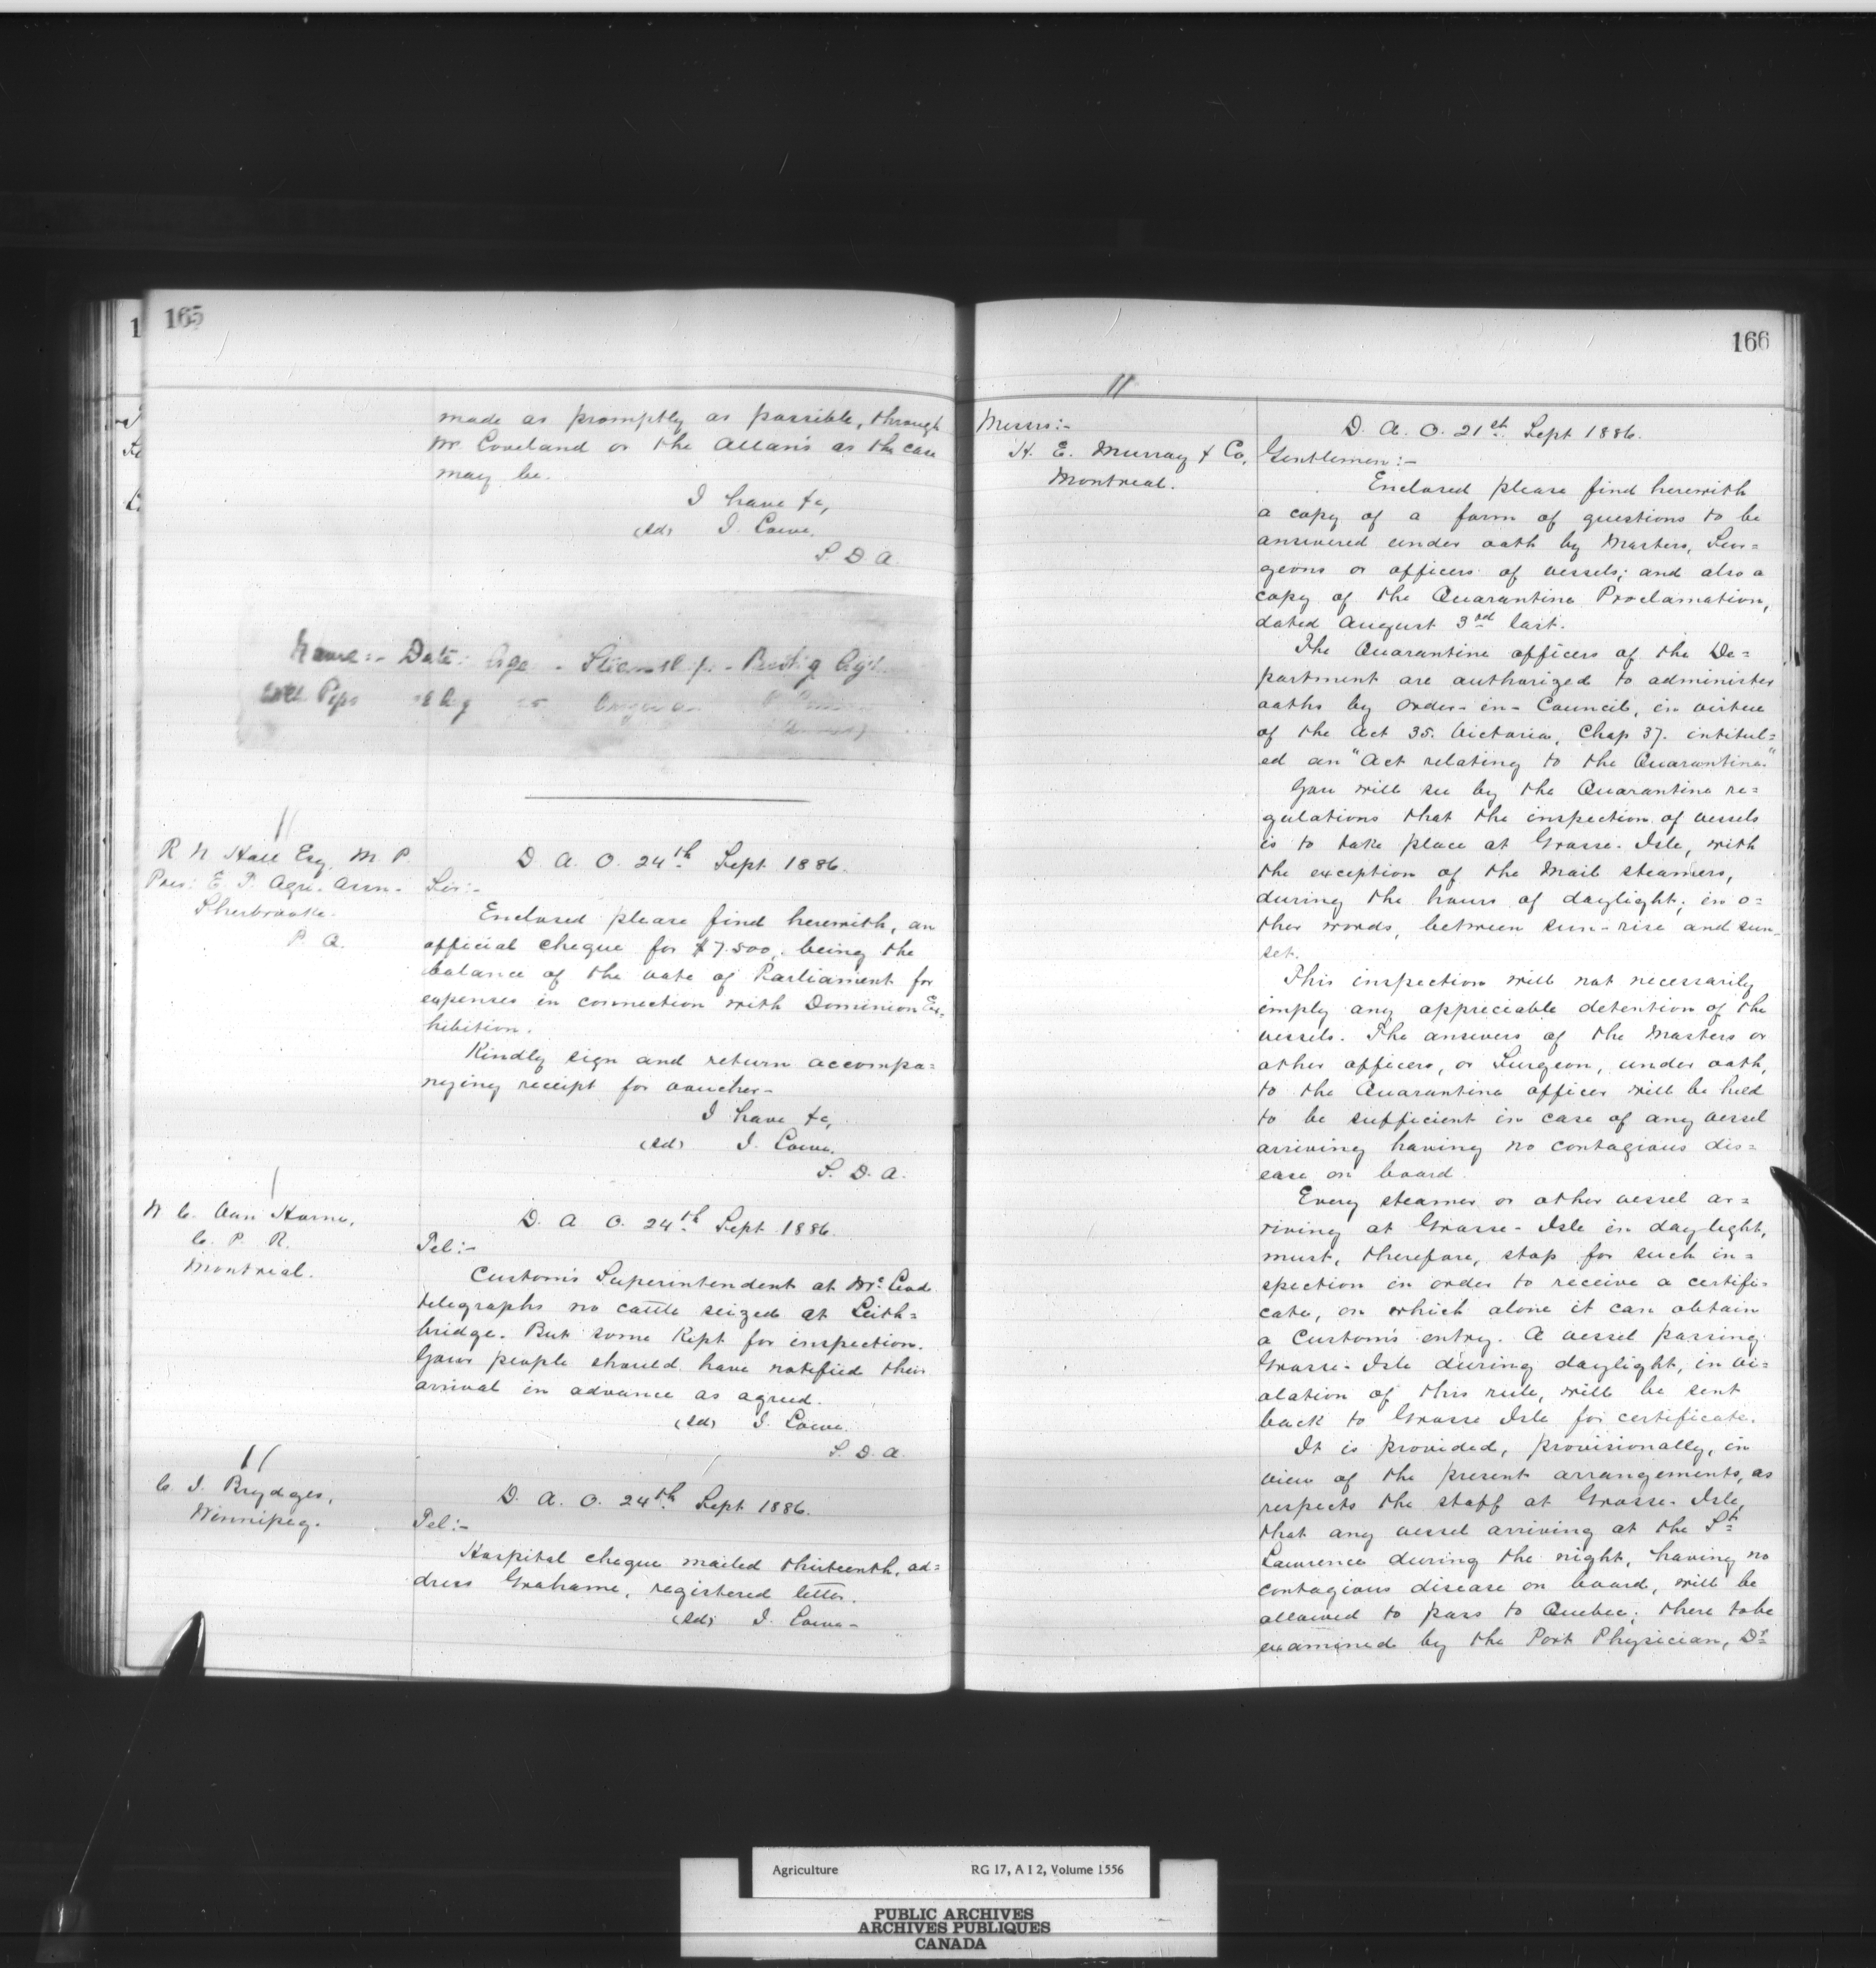 165
made as promptly as possible, through
Mr Loveland or the Allan's as the case
may be.
I have &c,
(sd) J. Lowe.
S. D. A.
Name:- Date: Age - Steamship:-
11
R N Hall Esq. M. P.
Pres: E. T. Agri. Assn.
Sherbrooke.
P. Q.
D. A. O. 24th Sept 1886.
Sir:-
Enclosed please find herewith, an
official cheque for $7.500, being the
balance of the vote of Parliament for
expenses in connection with Dominion Ex-
hibition.
Kindly sign and return accompa=
nying receipt for voucher-
I have &c,
(sd) J. Lowe.
S. D. A.
W C. Van Horne,
C. P. R.
Montreal.
D. A. O. 24th Sept 1886.
Tel:-
Customs Superintendent at McLeod
telegraphs no cattle seized at Leith=
bridge. But some kept for inspection.
Your people should have notified their
arrival in advance as agreed.
(sd) J. Lowe.
S. D. A.
11
C. J. Brydges,
Winnipeg.
D. A. O. 24th Sept 1886.
Tel:-
Hospital cheque mailed thirteenth, ad=
dress Grahame, registered letter.
(sd) J. Lowe-
166
11
Messrs:-
H. E. Murray & Co,
Montreal.
D. A. O. 21st Sept 1886.
Gentlemen:-
Enclosed please find herewith
a copy of a form of questions to be
answered under oath by Masters, Sur=
geons or officers of vessels; and also a
copy of the Quarantine Proclamation,
dated August 3rd last.
The Quarantine officers of the De=
partment are authorized to administer
oaths by Order-in-Council, in virtue
of the Act 35. Victoria, Chap 37. intitul=
ed an "Act relating to the Quarantine."
You will see by the Quarantine re=
gulations that the inspection of vessels
is to take place at Grosse-Isle, with
the exception of the Mail steamers,
during the hours of daylight; in o=
ther words, between sun-rise and sun-
set.
This inspection will not necessarily
imply any appreciable detention of the
vessels. The answers of the Masters or
other officers, or Surgeon, under oath,
to the Quarantine officer will be held
to be sufficient in case of any vessel
arriving having no contagious dis=
ease on board.
Every steamer or other vessel ar=
riving at Grosse-Isle in daylight,
must, therefore, stop for such in=
spection in order to receive a certifi-
cate, on which alone it can obtain
a Customs entry. A vessel passing
Grosse-Isle during daylight, in vi=
olation of this rule, will be sent
back to Grosse Isle for certificate.
It is provided, provisionally, in
view of the present arrangements, as
respects the staff at Grosse-Isle,
that any vessel arriving at the St
Lawrence during the night, having no
contagious disease on board, will be
allowed to pass to Quebec; there to be
examined by the Port Physician, Dr
Agriculture RG 17, A I 2, Volume 1556
PUBLIC ARCHIVES
ARCHIVES PUBLIQUES
CANADA